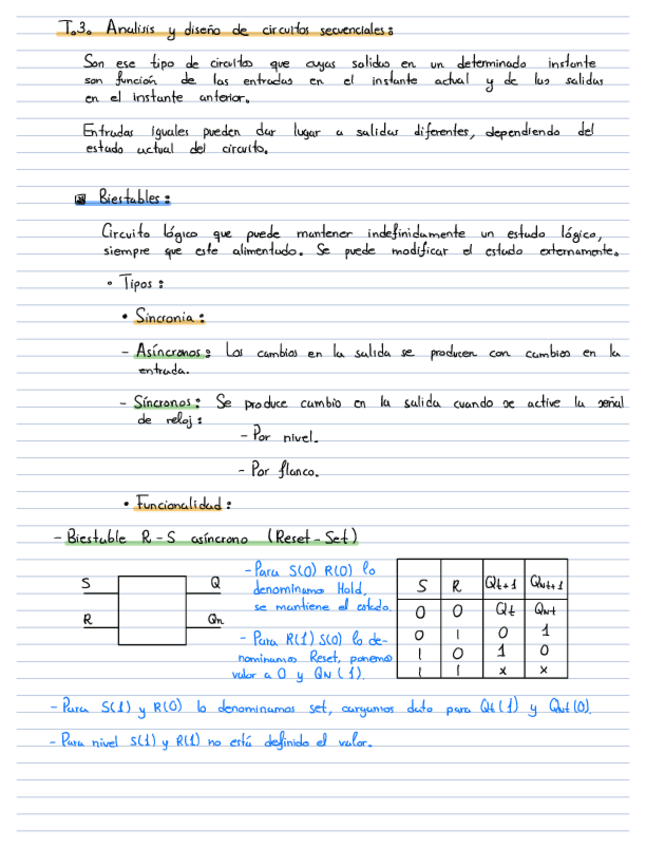 T.3. Analisis y diseño de circuitos secuenciales:
Son ese tipo de circuitos que cuyas salidas en un determinado instante
son función de las entradas en el instante actual y de las salidas
en el instante anterior.
Entradas iguales pueden dar lugar a salidas diferentes, dependiendo del
estado actual del circuito.
Biestables:
Circuito lógico que puede mantener indefinidamente un estado lógico,
siempre que este alimentado. Se puede modificar el estado externamente.
• Tipos:
• Sincronia:
- Asíncronos: Los cambios en la salida se producen con cambios en la
entrada.
- Síncronos: Se produce cambio en la salida cuando se active la señal
de reloj:
- Por nivel.
- Por flanco.
• Funcionalidad:
- Biestable R-S asíncrono (Reset-Set)
S Q
R Qn
- Para S(0) R(0) lo
denominamos Hold,
se mantiene el estado.
- Para R(1) S(0) lo de-
nominamos Reset, ponemos
valor a 0 y QN (1).
S R Qt+1 QNt+1
0 0 Qt QNt
0 1 0 1
1 0 1 0
1 1 x x
- Para S(1) y R(0) lo denominamos set, cargamos dato para Qt(1) y QNt(0).
- Para nivel S(1) y R(1) no está definido el valor.